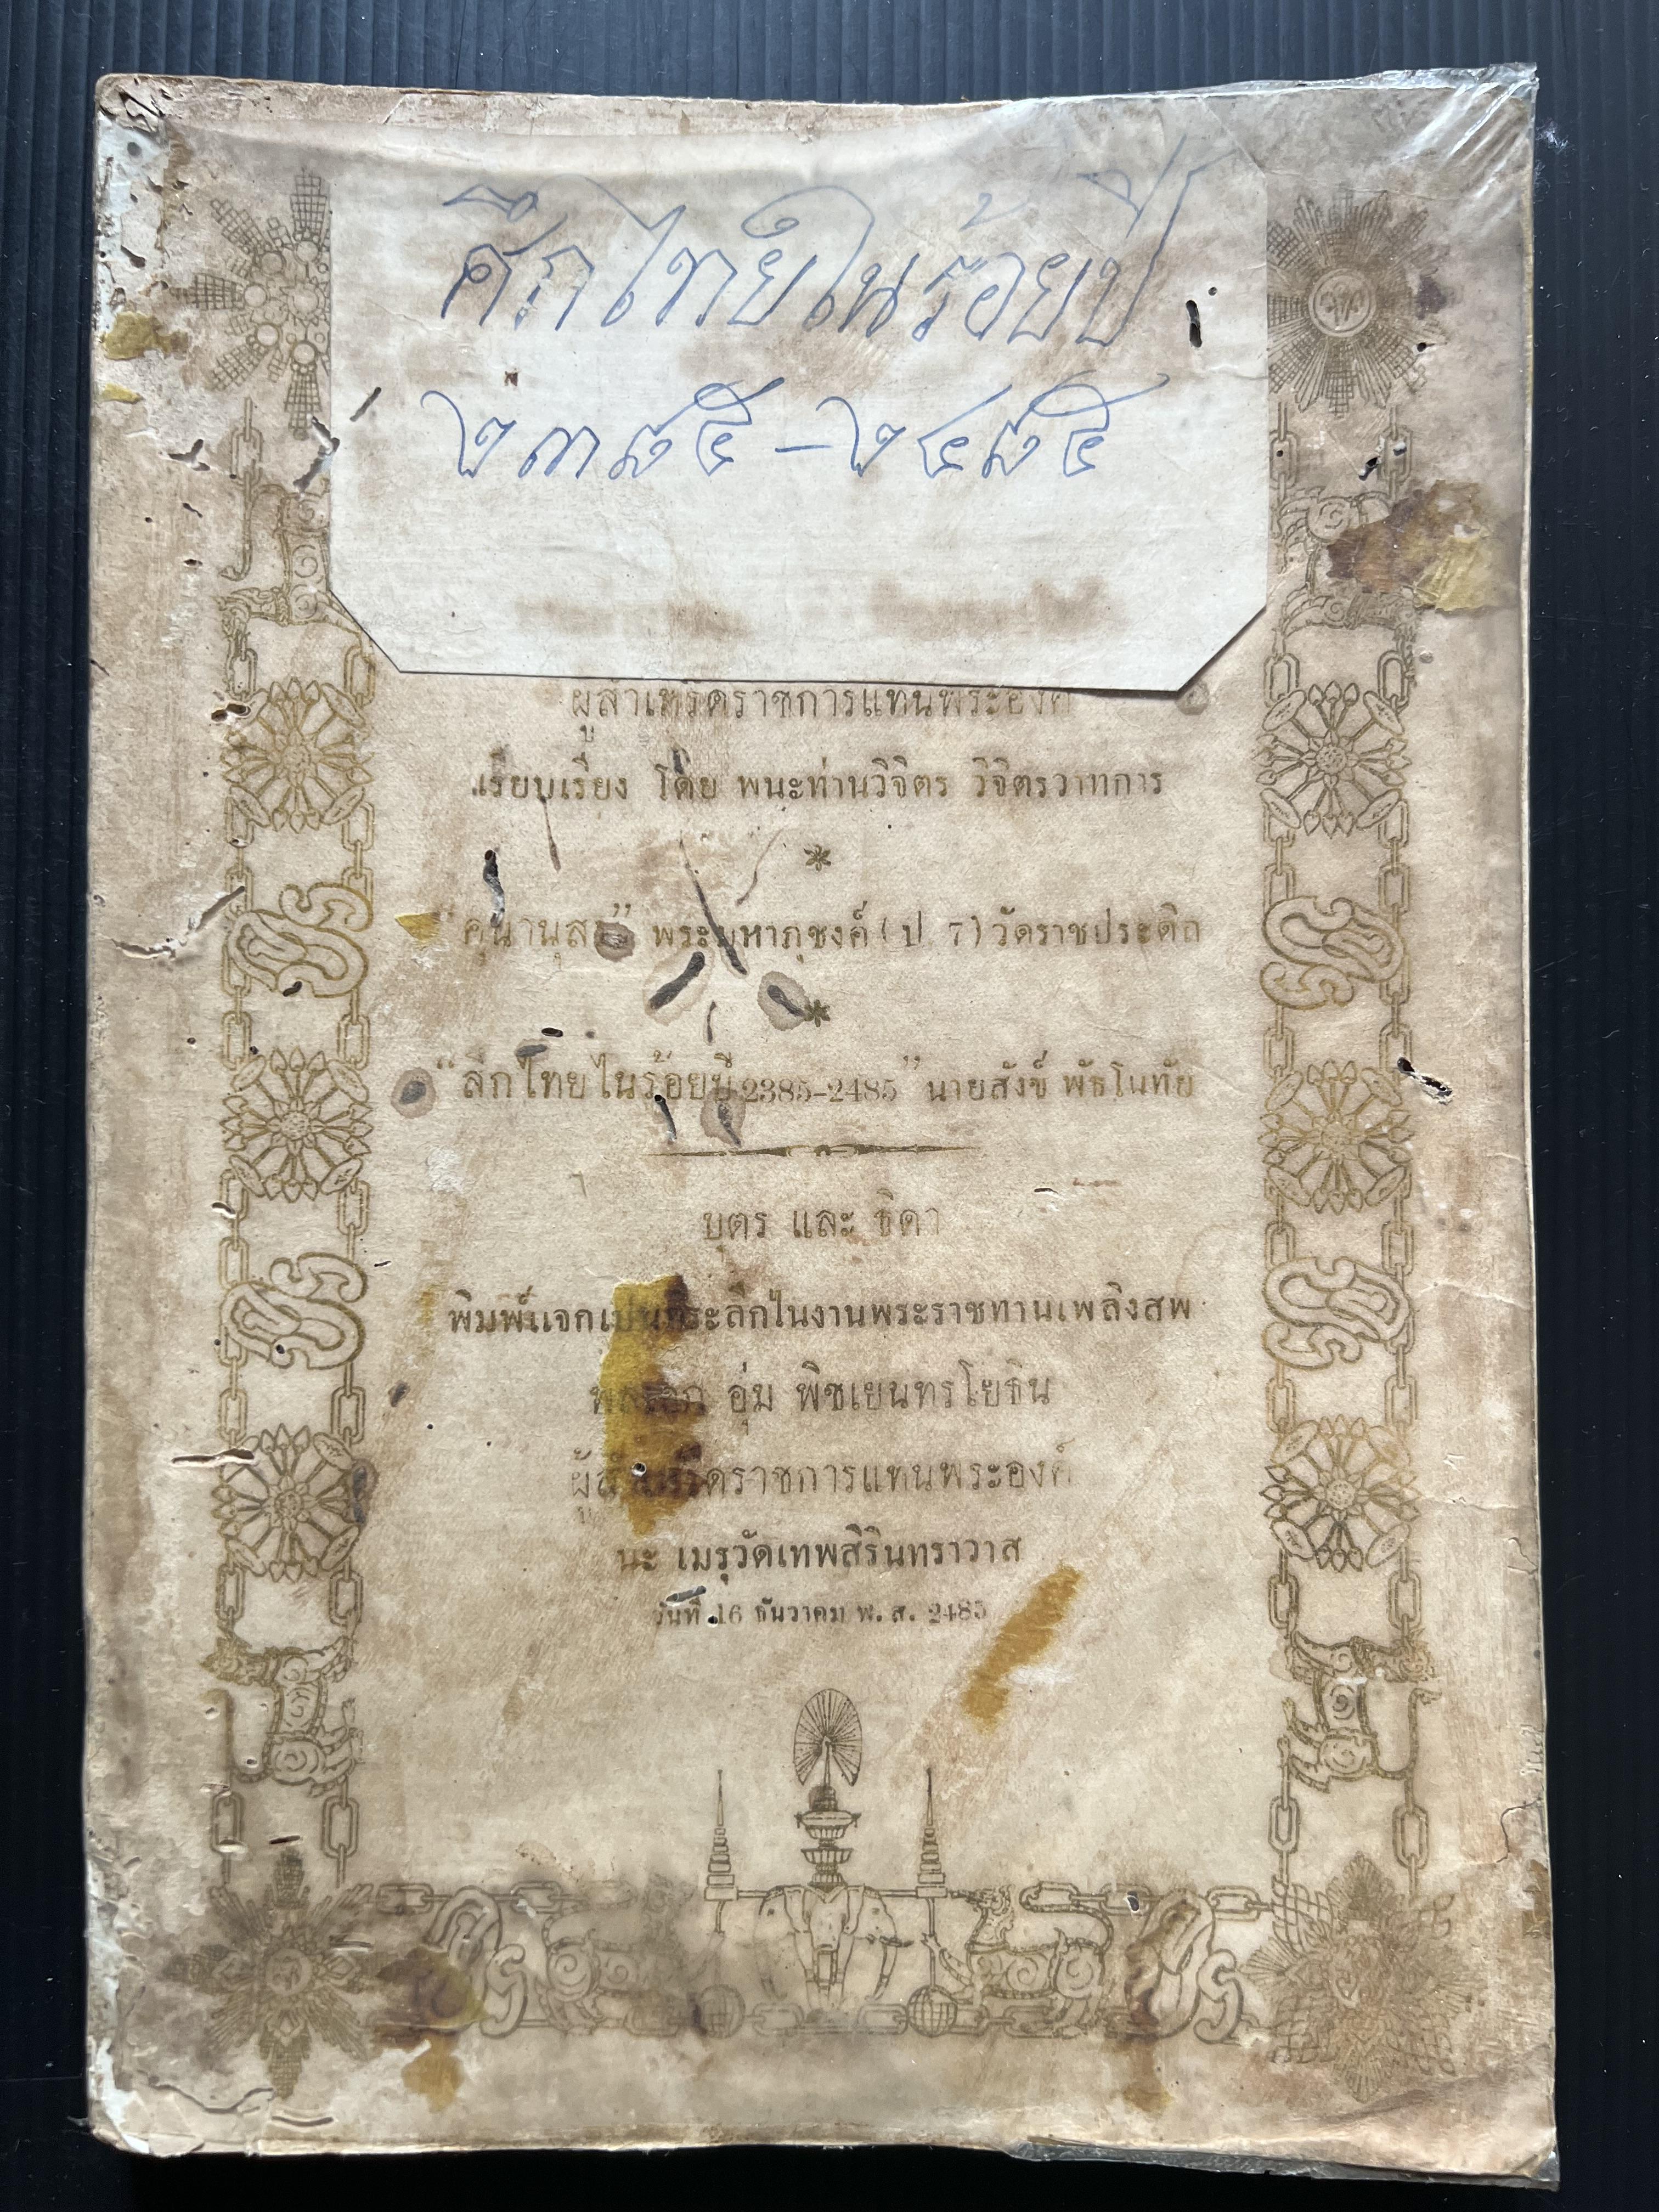 ศึกไทยในร้อยปี
๒๓๘๕-๒๔๘๕
ผู้สำเหร็ดราชการแทนพระองค์
เรียบเรียง โดย พนะท่านวิจิตร วิจิตรวาทการ
*
"คุนานุสรน์" พระมหาภุชงค์ (ป 7) วัดราชประดิถ
*
"สึกไทยไนร้อยปี 2385-2485" นายสังข์ พัธโนทัย
บุตร และ ธิดา
พิมพ์แจกเป็นที่ระลึกไนงานพระราชทานเพลิงสพ
พลเอก อุ่ม พิชเยนทรโยธิน
ผู้สำเหร็ดราชการแทนพระองค์
นะ เมรุวัดเทพสิรินทราวาส
วันที่ 16 ธันวาคม พ. ส. 2485